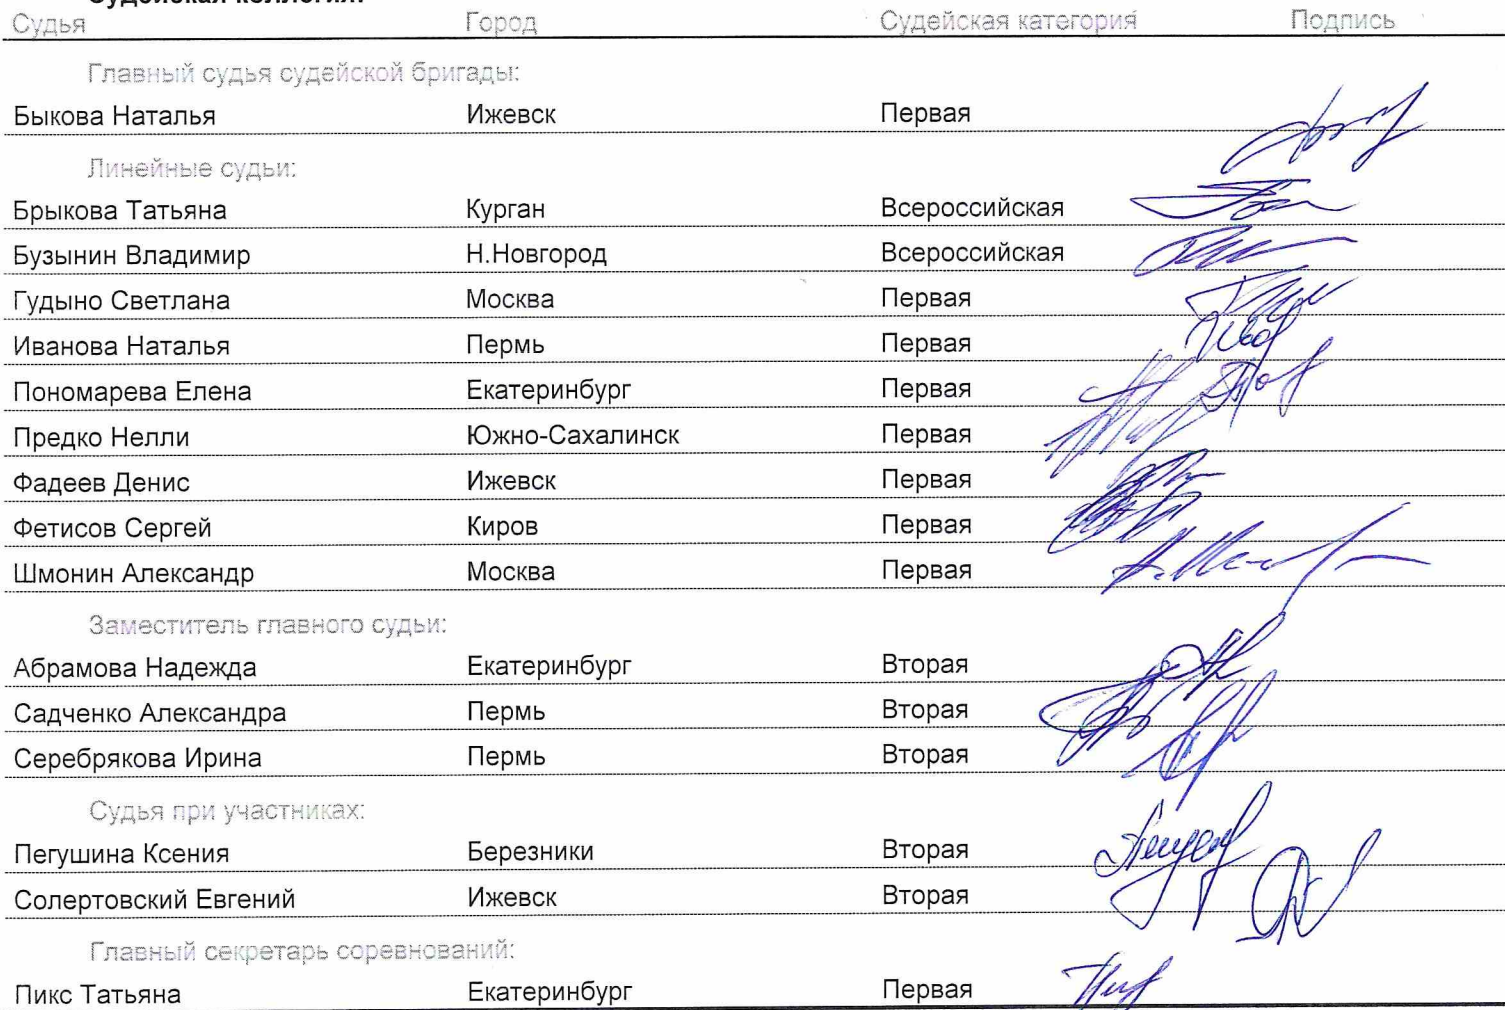 Судейская коллегия:
Судья Город Судейская категория Подпись
Главный судья судейской бригады:
Быкова Наталья Ижевск Первая
Линейные судьи:
Брыкова Татьяна Курган Всероссийская
Бузынин Владимир Н.Новгород Всероссийская
Гудыно Светлана Москва Первая
Иванова Наталья Пермь Первая
Пономарева Елена Екатеринбург Первая
Предко Нелли Южно-Сахалинск Первая
Фадеев Денис Ижевск Первая
Фетисов Сергей Киров Первая
Шмонин Александр Москва Первая
Заместитель главного судьи:
Абрамова Надежда Екатеринбург Вторая
Садченко Александра Пермь Вторая
Серебрякова Ирина Пермь Вторая
Судья при участниках:
Пегушина Ксения Березники Вторая
Солертовский Евгений Ижевск Вторая
Главный секретарь соревнований:
Пикс Татьяна Екатеринбург Первая